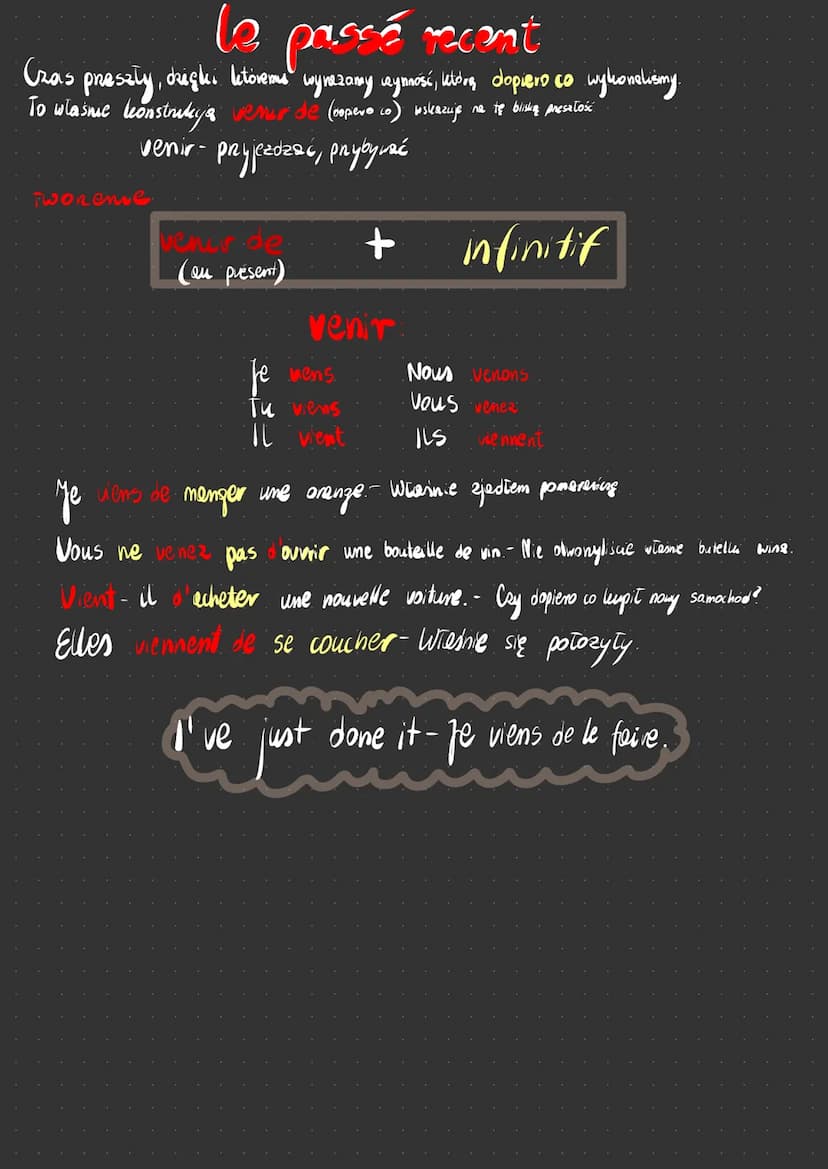 le passé recent
Czas przeszły, dzięki któremu wyrażamy czynność, którą dopiero co wykonaliśmy.
To właśnie konstrukcja venir de (dopiero co) wskazuje na tę bliską przeszłość
venir - przyjeżdżać, przybywać
Tworzenie
venir de + infinitif
(au présent)
venir
Je viens Nous venons
Tu viens Vous venez
Il vient Ils viennent
Je viens de manger une orange. - Właśnie zjadłem pomarańczę
Vous ne venez pas d'ouvrir une bouteille de vin. - Nie otworzyliście właśnie butelki wina.
Vient - il d'acheter une nouvelle voiture. - Czy dopiero co kupił nowy samochód?
Elles viennent de se coucher - Właśnie się położyły.
I've just done it - Je viens de le faire.